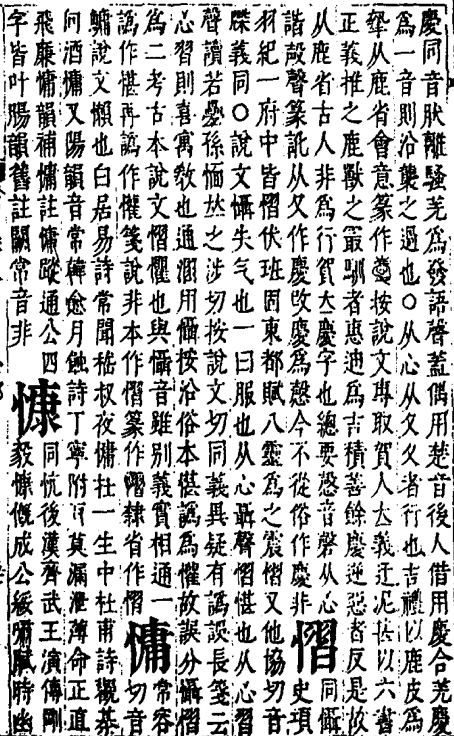 慶同音肰離騷羌為發語聲蓋偶用楚音後人借用慶合羌慶
為一音則沿襲之過也○从心从夂夂者行也吉禮以鹿皮為
摯从鹿省會意篆作按說文專取賀人大義迂泥甚以六書
正義推之鹿獸之最馴者惠迪為吉積善餘慶逆惡者反是故
从鹿省古人非為行賀大慶字也總要愨音磬从心
諧㱿聲篆訛从又作慶改慶為愨今不從俗作慶非 慴 史項同懾
羽紀一府中皆慴伏班固東都賦八靈為之震慴又他協切音
牒義同○說文懾失气也一曰服也从心聶聲慴惵也从心習
聲讀若疊孫愐竝之涉切按說文切同義異疑有譌誤長箋云
心習則喜寓教也通溷用懾按沿俗本惵譌為懼故誤分懾慴
為二考古本說文慴懼也與懾音雖別義實相通一
譌作惵再譌作懼箋說非本作慴篆作隸省作慴 慵 常容切音
鱅說文懶也白居易詩常聞嵇叔夜慵杜一生中杜甫詩觀棊
向酒慵又陽韻音常韓愈月蝕詩丁寧附耳莫漏泄薄命正直
飛廉慵韻補慵註慵蹤通公四 慷 同忼後漢齊武王演傳剛
字皆叶陽韻舊註闕常音非 毅慷慨成公綏嘯賦時幽